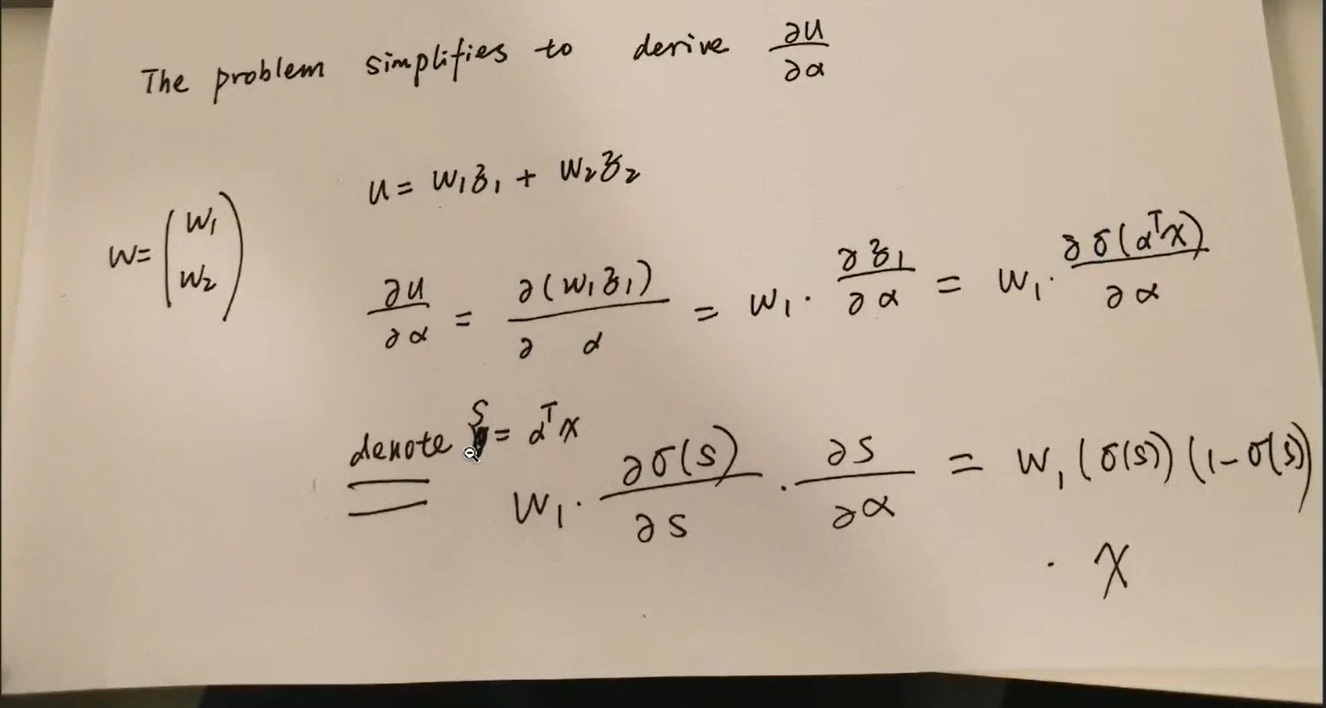 The problem simplifies to derive ∂u/∂α
u = w₁z₁ + w₂z₂
w = (w₁ w₂)
∂u/∂α = ∂(w₁z₁)/∂α = w₁ · ∂z₁/∂α = w₁ · ∂σ(αᵀx)/∂α
denote s = αᵀx
= w₁ · ∂σ(s)/∂s · ∂s/∂α = w₁(σ(s))(1-σ(s))
· x